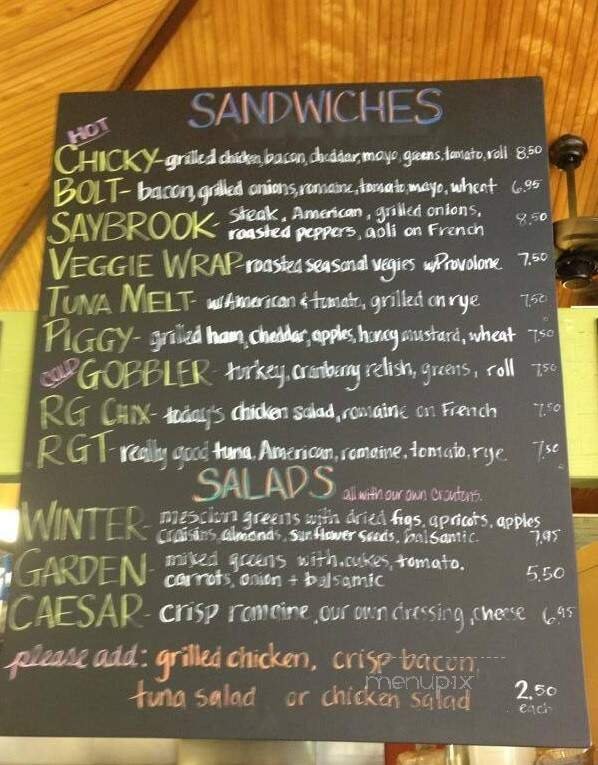 SANDWICHES
HOT
CHICKY- grilled chicken, bacon, cheddar, mayo, greens, tomato, roll 8.50
BOLT- bacon, grilled onions, romaine, tomato, mayo, wheat 6.95
SAYBROOK- Steak, American, grilled onions,
roasted peppers, aoli on French 8.50
VEGGIE WRAP- roasted seasonal vegies w/Provolone 7.50
TUNA MELT- w/American & tomato, grilled on rye 7.50
PIGGY- grilled ham, cheddar, apples, honey mustard, wheat 7.50
COLD
GOBBLER- turkey, cranberry relish, greens, roll 7.50
RG CHIX- today's chicken salad, romaine on French 7.50
RGT- really good tuna, American, romaine, tomato, rye 7.50
SALADS all with our own croutons.
WINTER- mesclun greens with dried figs, apricots, apples
craisins, almonds, sunflower seeds, balsamic 7.95
GARDEN- mixed greens with cukes, tomato,
carrots, onion + balsamic 5.50
CAESAR- crisp romaine, our own dressing, cheese 6.95
please add: grilled chicken, crisp bacon,
menupix
tuna salad or chicken salad 2.50
each